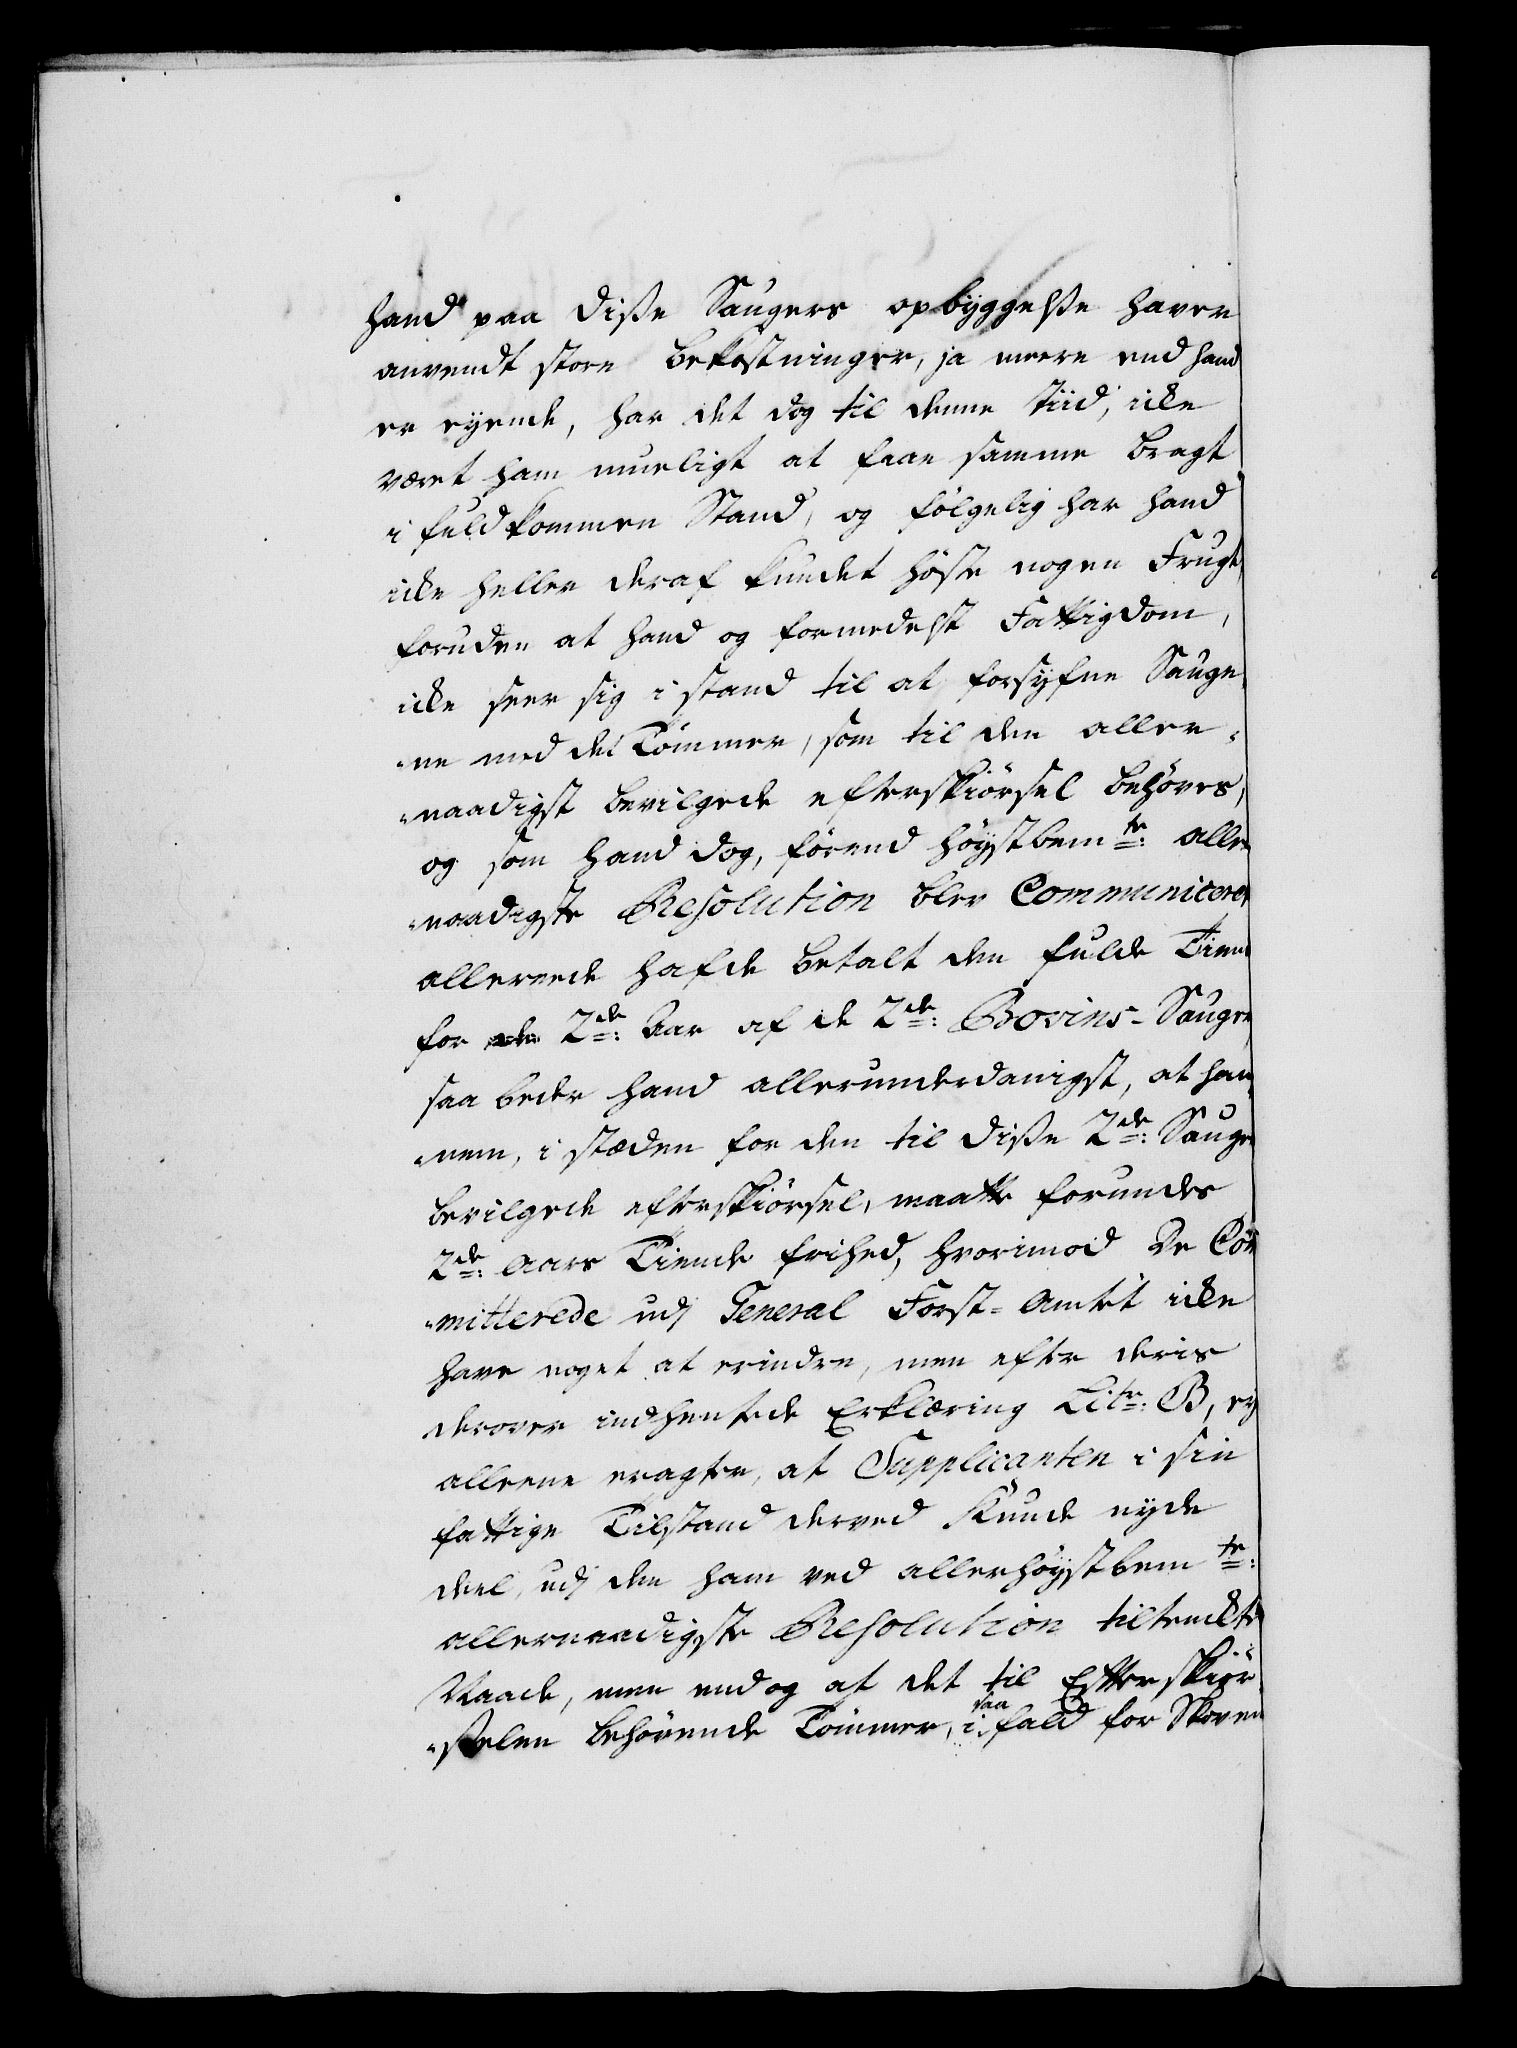 hand paa diße Saugers opbyggelße haver
anvendt store bekostninger, ja meere end hand
er eyende, har det dog til denne tiid, icke
været ham mueligt at faae samme bragt
i fuldkommen Stand, og følgelig har hand
icke heller deraf kundet høste nogen Frugt,
foruden at hand og formedelst Fattigdom,
icke seer sig i stand til at forsyfne Sauge,
„ne med det Tömmer, som til den aller„
„naadigst bevilgede efterskiörsel behöves,
og som hand dog, förend höystbemte: aller
„naadigste Resolution blev Communiceret
allereede hafde betalt den fulde Tiende
for 2de: Aar af de 2de: Bovins-Sauger,
saa beder hand allerunderdanigst, at han„
„nem, i stæden for den til diße 2de: Sauge
bevilgede efterskiörsel, maatte forundes
2de: Aars Tiende frihed, hvorimod De Com
„mitterede udj General Forst-Amtet icke
have noget at erindre, men efter deris
derover indhentede Erklæring Litr: B, ey
alleene eragter, at Supplicanten i sin
fattige Tilstand derved kunde nyde
deel udj den ham ved allerhöystbemte:
allernaadigste Resolution tiltenckte
Naade, men endog at det til Efterskiör„
„selen behövende Tömmer, i saa fald for Skoven